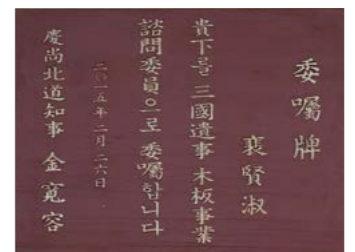 委嘱牌
裵賢淑
貴下를 三國遺事 木板事業
諮問委員으로 委嘱합니다
二〇一五年 二月 二六日
慶尙北道知事 金寬容